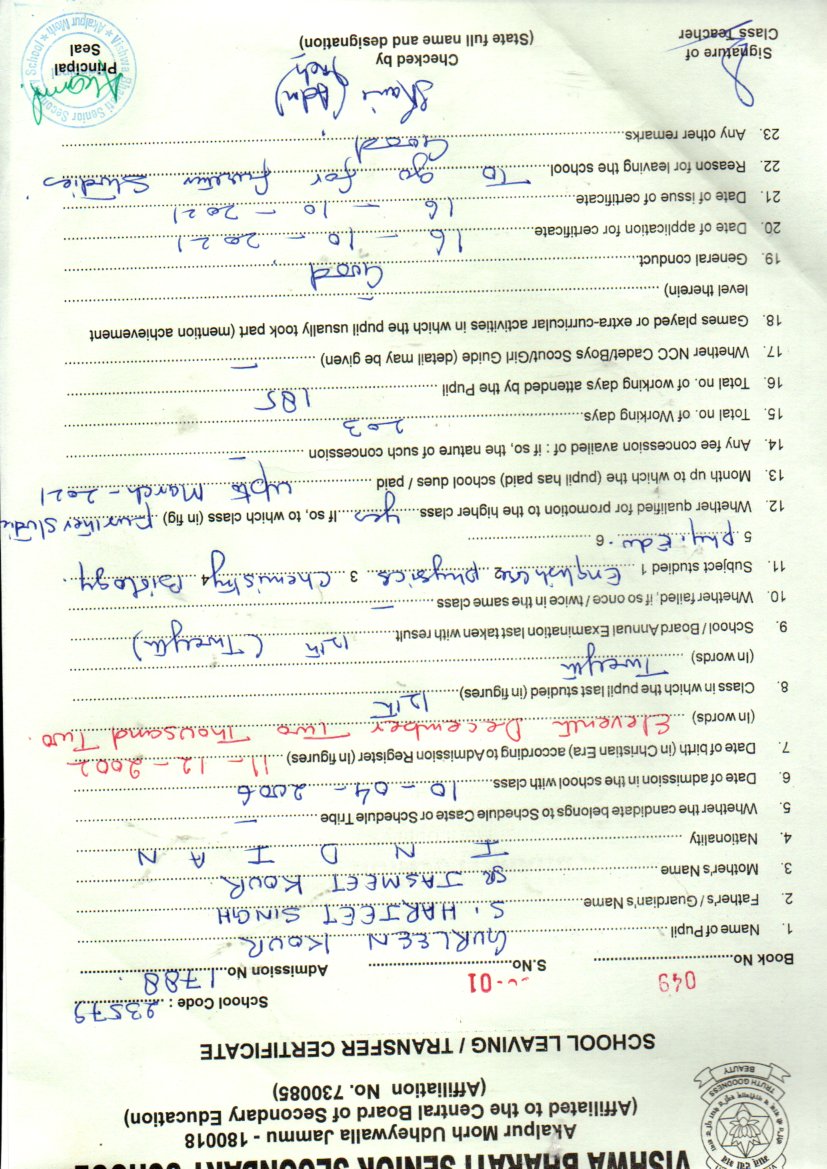 VISHWA BHARATI SENIOR SECONDARY SCHOOL
Akalpur Morh Udheywalla Jammu - 180018
(Affiliated to the Central Board of Secondary Education)
(Affiliation No. 730085)
TRUTH GOODNESS
BEAUTY
SCHOOL LEAVING / TRANSFER CERTIFICATE
School Code : 23579
Book No. 049 S.No. -01 Admission No. 1788
1. Name of Pupil GURLEEN KOUR
2. Father's / Guardian's Name S. HARJEET SINGH
3. Mother's Name SR JASMEET KOUR
4. Nationality INDIAN
5. Whether the candidate belongs to Schedule Caste or Schedule Tribe —
6. Date of admission in the school with class 10-04-2006
7. Date of birth (in Christian Era) according to Admission Register (In figures) 11-12-2002
(In words) Eleventh December Two Thousand Two.
8. Class in which the pupil last studied (in figures) 12th
(In words) Twelfth
9. School / Board Annual Examination last taken with result 12th (Twelfth)
10. Whether failed, if so once / twice in the same class —
11. Subject studied 1 English 2 physics 3 Chemistry 4 Biology
5 Phy. Edu. 6
12. Whether qualified for promotion to the higher class yes If so, to which class (in fig) Further studie
13. Month up to which the (pupil has paid) school dues / paid upto March-2021
14. Any fee concession availed of : if so, the nature of such concession —
15. Total no. of Working days 203
16. Total no. of working days attended by the Pupil 185
17. Whether NCC Cadet/Boys Scout/Girl Guide (detail may be given) —
18. Games played or extra-curricular activities in which the pupil usually took part (mention achievement
level therein) —
19. General conduct Good
20. Date of application for certificate 16-10-2021
21. Date of issue of certificate 16-10-2021
22. Reason for leaving the school To go for further studies
23. Any other remarks Good
Signature of
Class Teacher
Checked by
(State full name and designation)
Principal
Seal
Vishwa Bharati Senior Secondary School Akalpur Morh